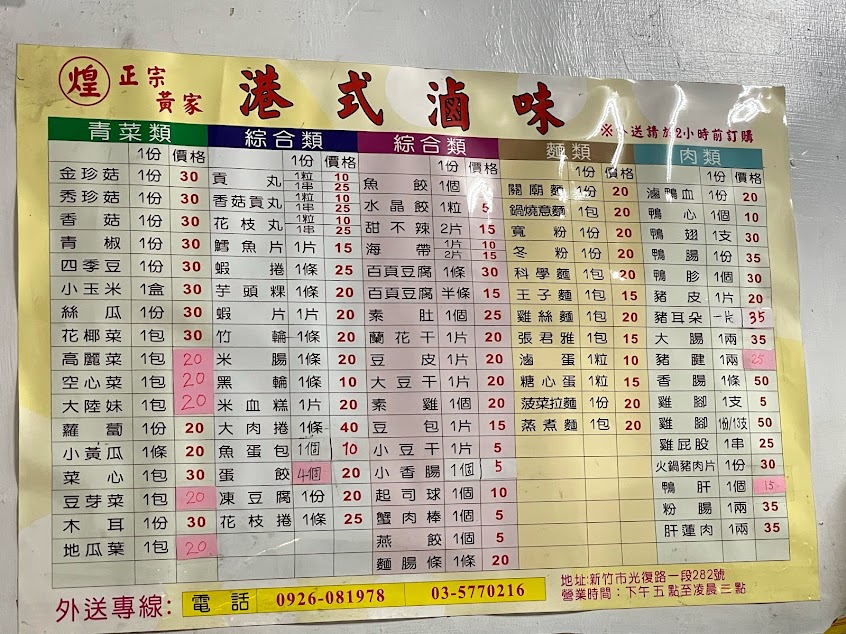 煌 正宗 黃家 港式滷味
※外送請於2小時前訂購
青菜類
1份 價格
金珍菇 1份 30
秀珍菇 1份 30
香菇 1份 30
青椒 1份 30
四季豆 1份 30
小玉米 1盒 30
絲瓜 1份 30
花椰菜 1包 30
高麗菜 1包 20
空心菜 1包 20
大陸妹 1包 20
蘿蔔 1份 20
小黃瓜 1條 20
菜心 1包 30
豆芽菜 1包 20
木耳 1份 30
地瓜葉 1包 20
綜合類
1份 價格
貢丸 1粒 10 1串 25
香菇貢丸 1粒 10 1串 25
花枝丸 1粒 10 1串 25
鱈魚片 1片 15
蝦捲 1條 25
芋頭粿 1條 20
蝦片 1片 20
竹輪 1條 20
米腸 1條 20
黑輪 1條 10
米血糕 1片 20
大肉捲 1條 40
魚蛋包 1個 10
蛋餃 4個 20
凍豆腐 1份 20
花枝捲 1條 25
綜合類
1份 價格
魚餃 1個
水晶餃 1粒 5
甜不辣 2片 15
海帶 1片 10 2片 15
百頁豆腐 1條 30
百頁豆腐 半條 15
素肚 1個 25
蘭花干 1片 20
豆皮 1片 20
大豆干 1片 20
素雞 1個 20
豆包 1片 15
小豆干 1片 5
小香腸 1個 5
起司球 1個 10
蟹肉棒 1個 5
燕餃 1個 5
麵腸條 1條 20
麵類
1份 價格
關廟麵 1份 20
鍋燒意麵 1包 20
寬粉 1份 20
冬粉 1份 20
科學麵 1包 20
王子麵 1包 15
雞絲麵 1包 20
張君雅 1包 15
滷蛋 1粒 10
糖心蛋 1粒 15
菠菜拉麵 1份 20
蒸煮麵 1包 20
肉類
1份 價格
滷鴨血 1份 20
鴨心 1個 10
鴨翅 1支 30
鴨腸 1份 35
鴨胗 1個 30
豬皮 1片 20
豬耳朵 一片 35
大腸 1兩 35
豬腱 1兩 25
香腸 1條 50
雞腳 1支 5
雞腳 1份/13支 50
雞屁股 1串 25
火鍋豬肉片 1份 30
鴨肝 1個 15
粉腸 1兩 35
肝蓮肉 1兩 35
外送專線: 電話 0926-081978 03-5770216
地址:新竹市光復路一段282號
營業時間:下午五點至凌晨三點